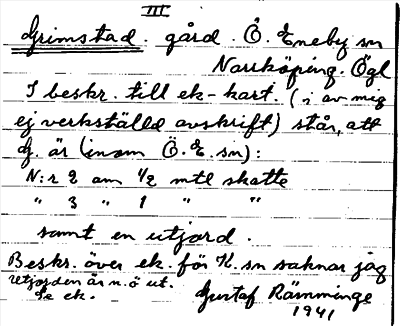 III
Grimstad. gård. Ö. Eneby sn
Norrköping. Ögl
I beskr. till ek-kart. (i av mig
ej verkställd avskrift) står, att
G. är (inom Ö. E. sn):
N:r 2 om 1/2 mtl skatte
" 3 " 1 " "
samt en utjord.
Beskr. över ek. för K. sn saknar jag
Utjorden är n. ö ut.
Se ek.
Gustaf Rämminge
1941